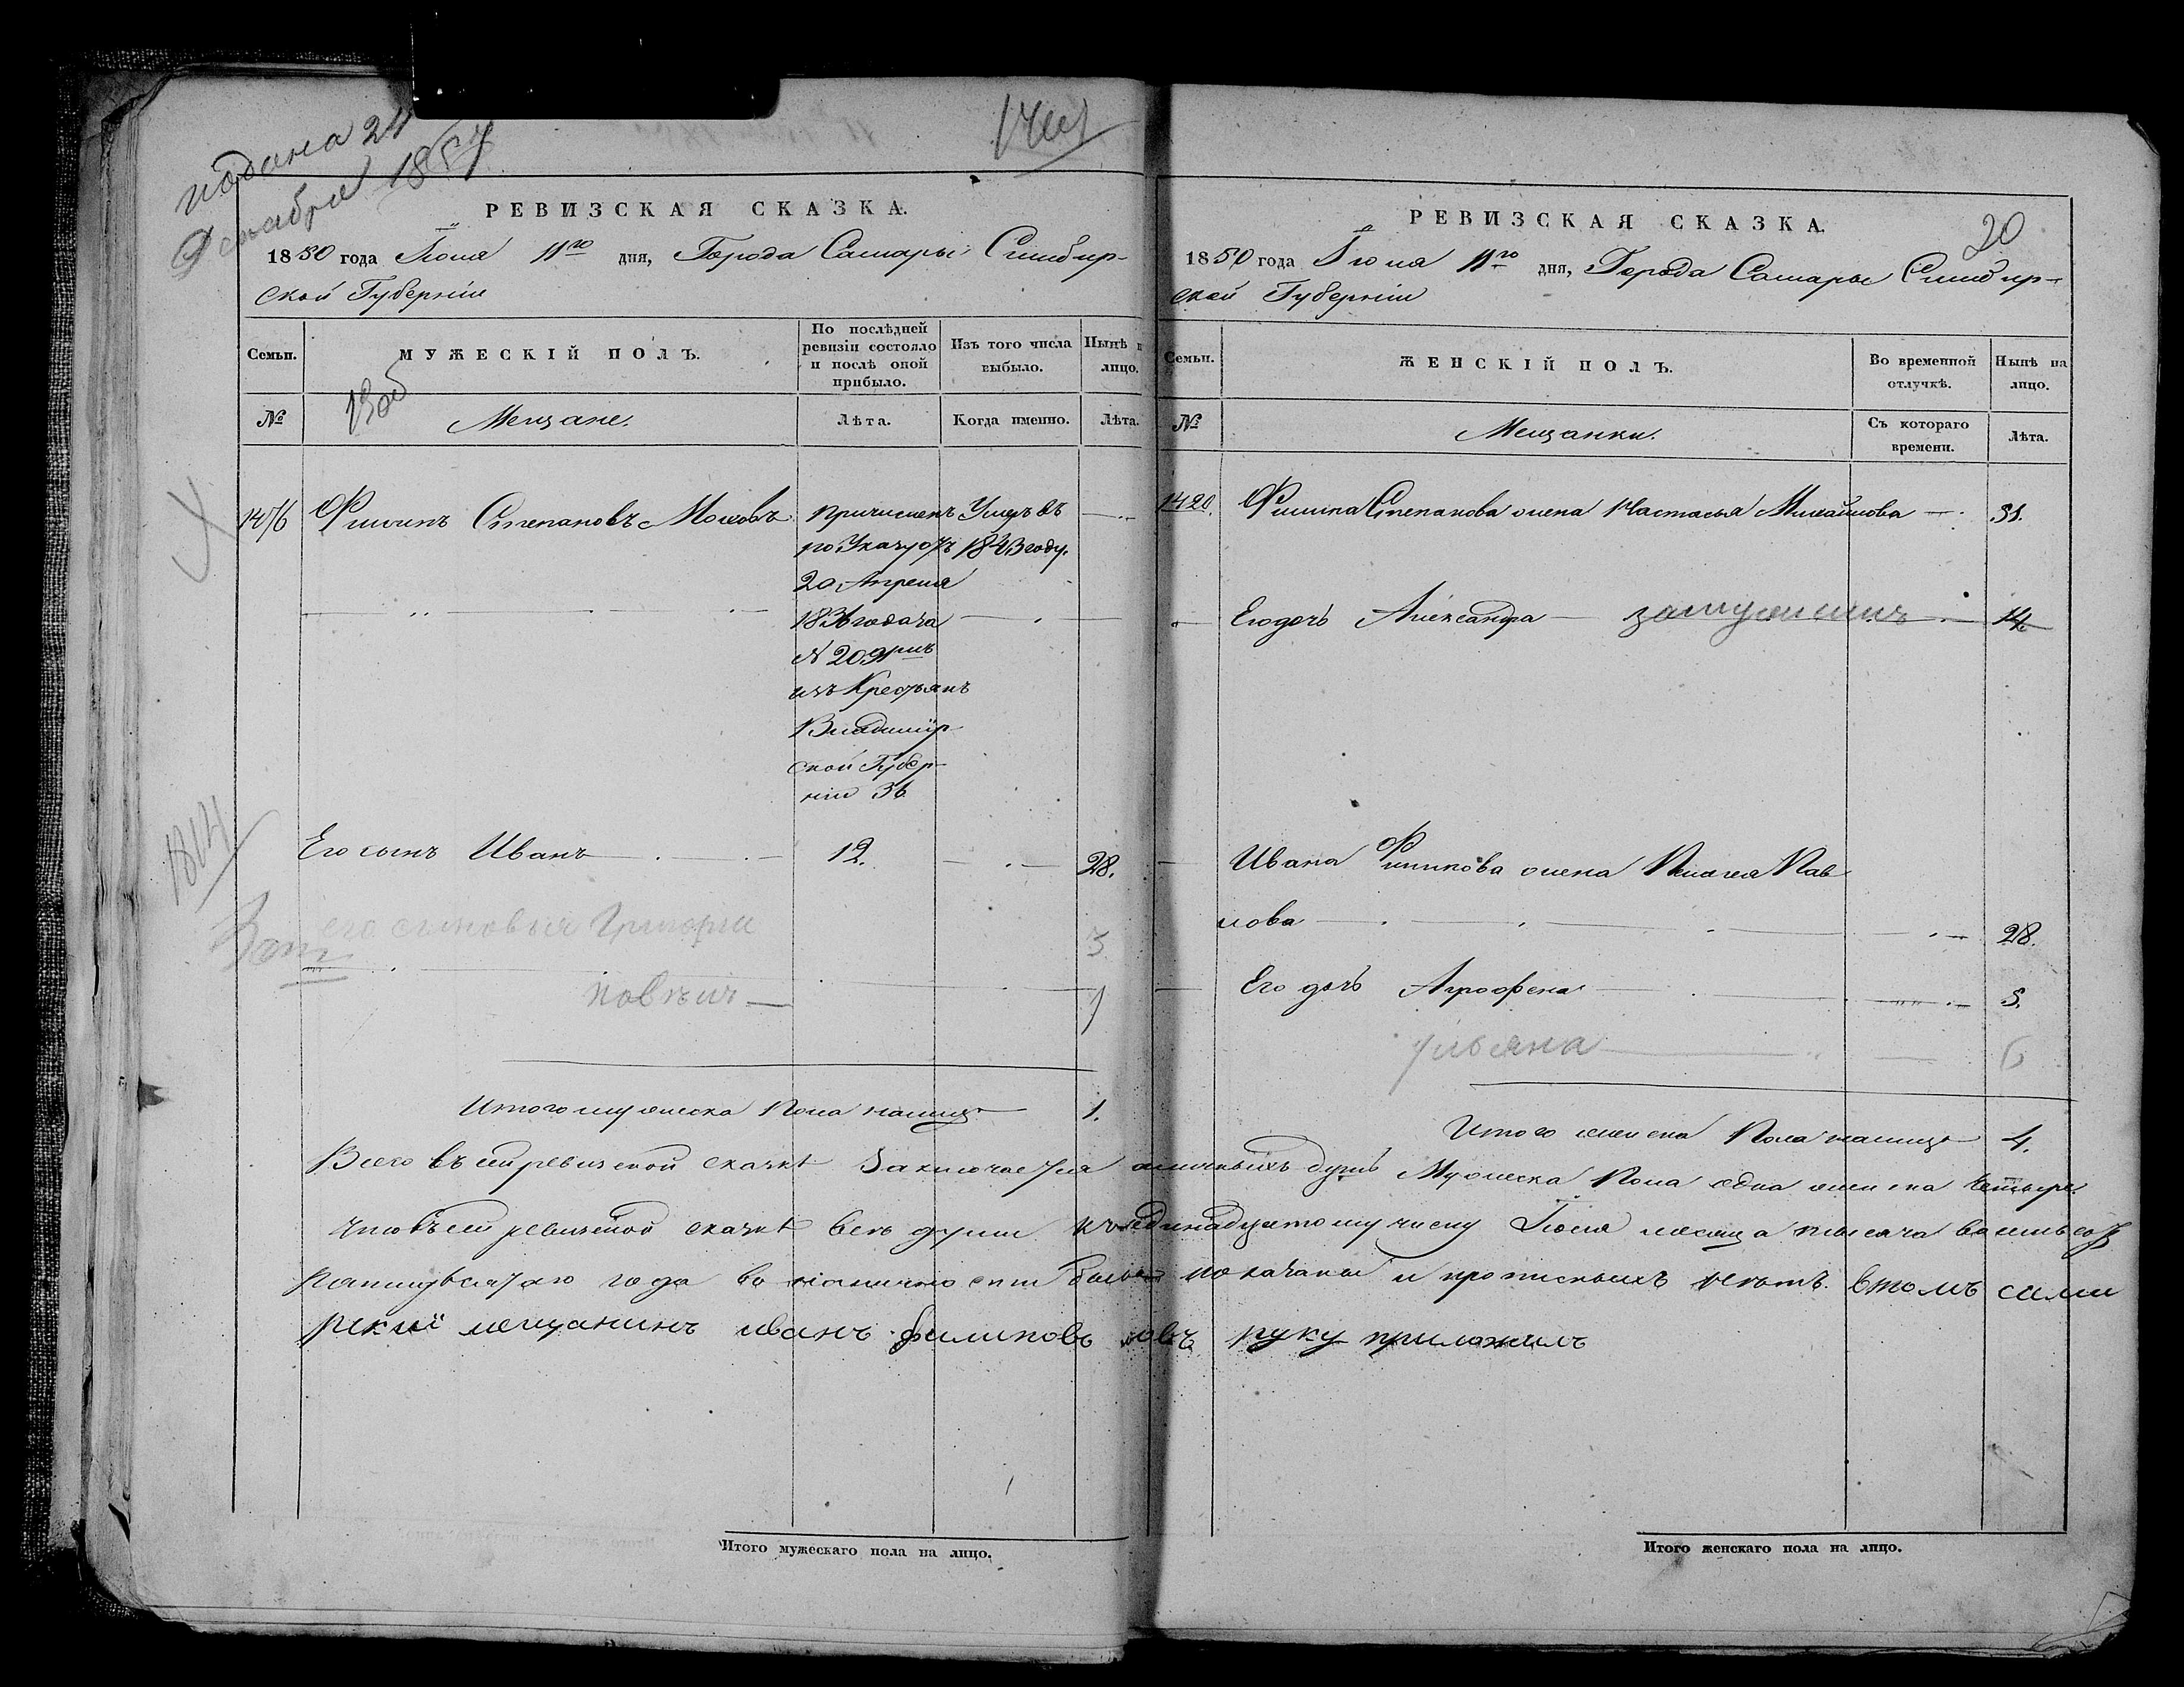 подана 21
Октября 1857
РЕВИЗСКАЯ СКАЗКА.
1850 года Іюня 11го дня, Города Самары Симбир-
ской Губерніи
Семьи.
МУЖЕСКІЙ ПОЛЪ.
По послѣдней ревизіи состояло и послѣ оной прибыло.
Изъ того числа выбыло.
Нынѣ на лицо.
№
Мещане.
Лѣта.
Когда именно.
Лѣта.
Филипъ Степановъ
причисленъ
по Указу отъ
20 Апреля
1836 года за
N 2091
изъ Крестьянъ
Владимір-
ской Губер-
ніи 36
Умеръ въ
1843 году.
Его сынъ Иванъ 12. 28.
его сыновья Григорій 3
1
1814
Итого мужеска Пола налицо 1.
20
РЕВИЗСКАЯ СКАЗКА.
1850 года Іюня 11го дня, Города Самары Симбир-
ской Губерніи
Семьи.
ЖЕНСКІЙ ПОЛЪ.
Во временной отлучкѣ.
Нынѣ на лицо.
№
Мещанки.
Съ котораго времени.
Лѣта.
Филипа Степанова жена Настасья Михайлова 51.
Его дочь Александра замужемъ 14
Ивана Филипова жена Пелагея Пав
лова 28.
Его дочь Агрофена 5.
ульяна 6
Итого женска Пола налицо 4.
Всего въ сей ревизской сказкѣ заключается наличныхъ душъ Мужеска Пола одна женска четыре.
Что въ сей ревизской сказкѣ все души къ одинадцатому числу Іюня месяца тысяча восемьсотъ
пятидесятаго года во наличности были показаны и прописныхъ нетъ. втомъ сама
рский мещанинъ иванъ филиповъ руку приложилъ
Итого мужескаго пола на лицо.
Итого женскаго пола на лицо.